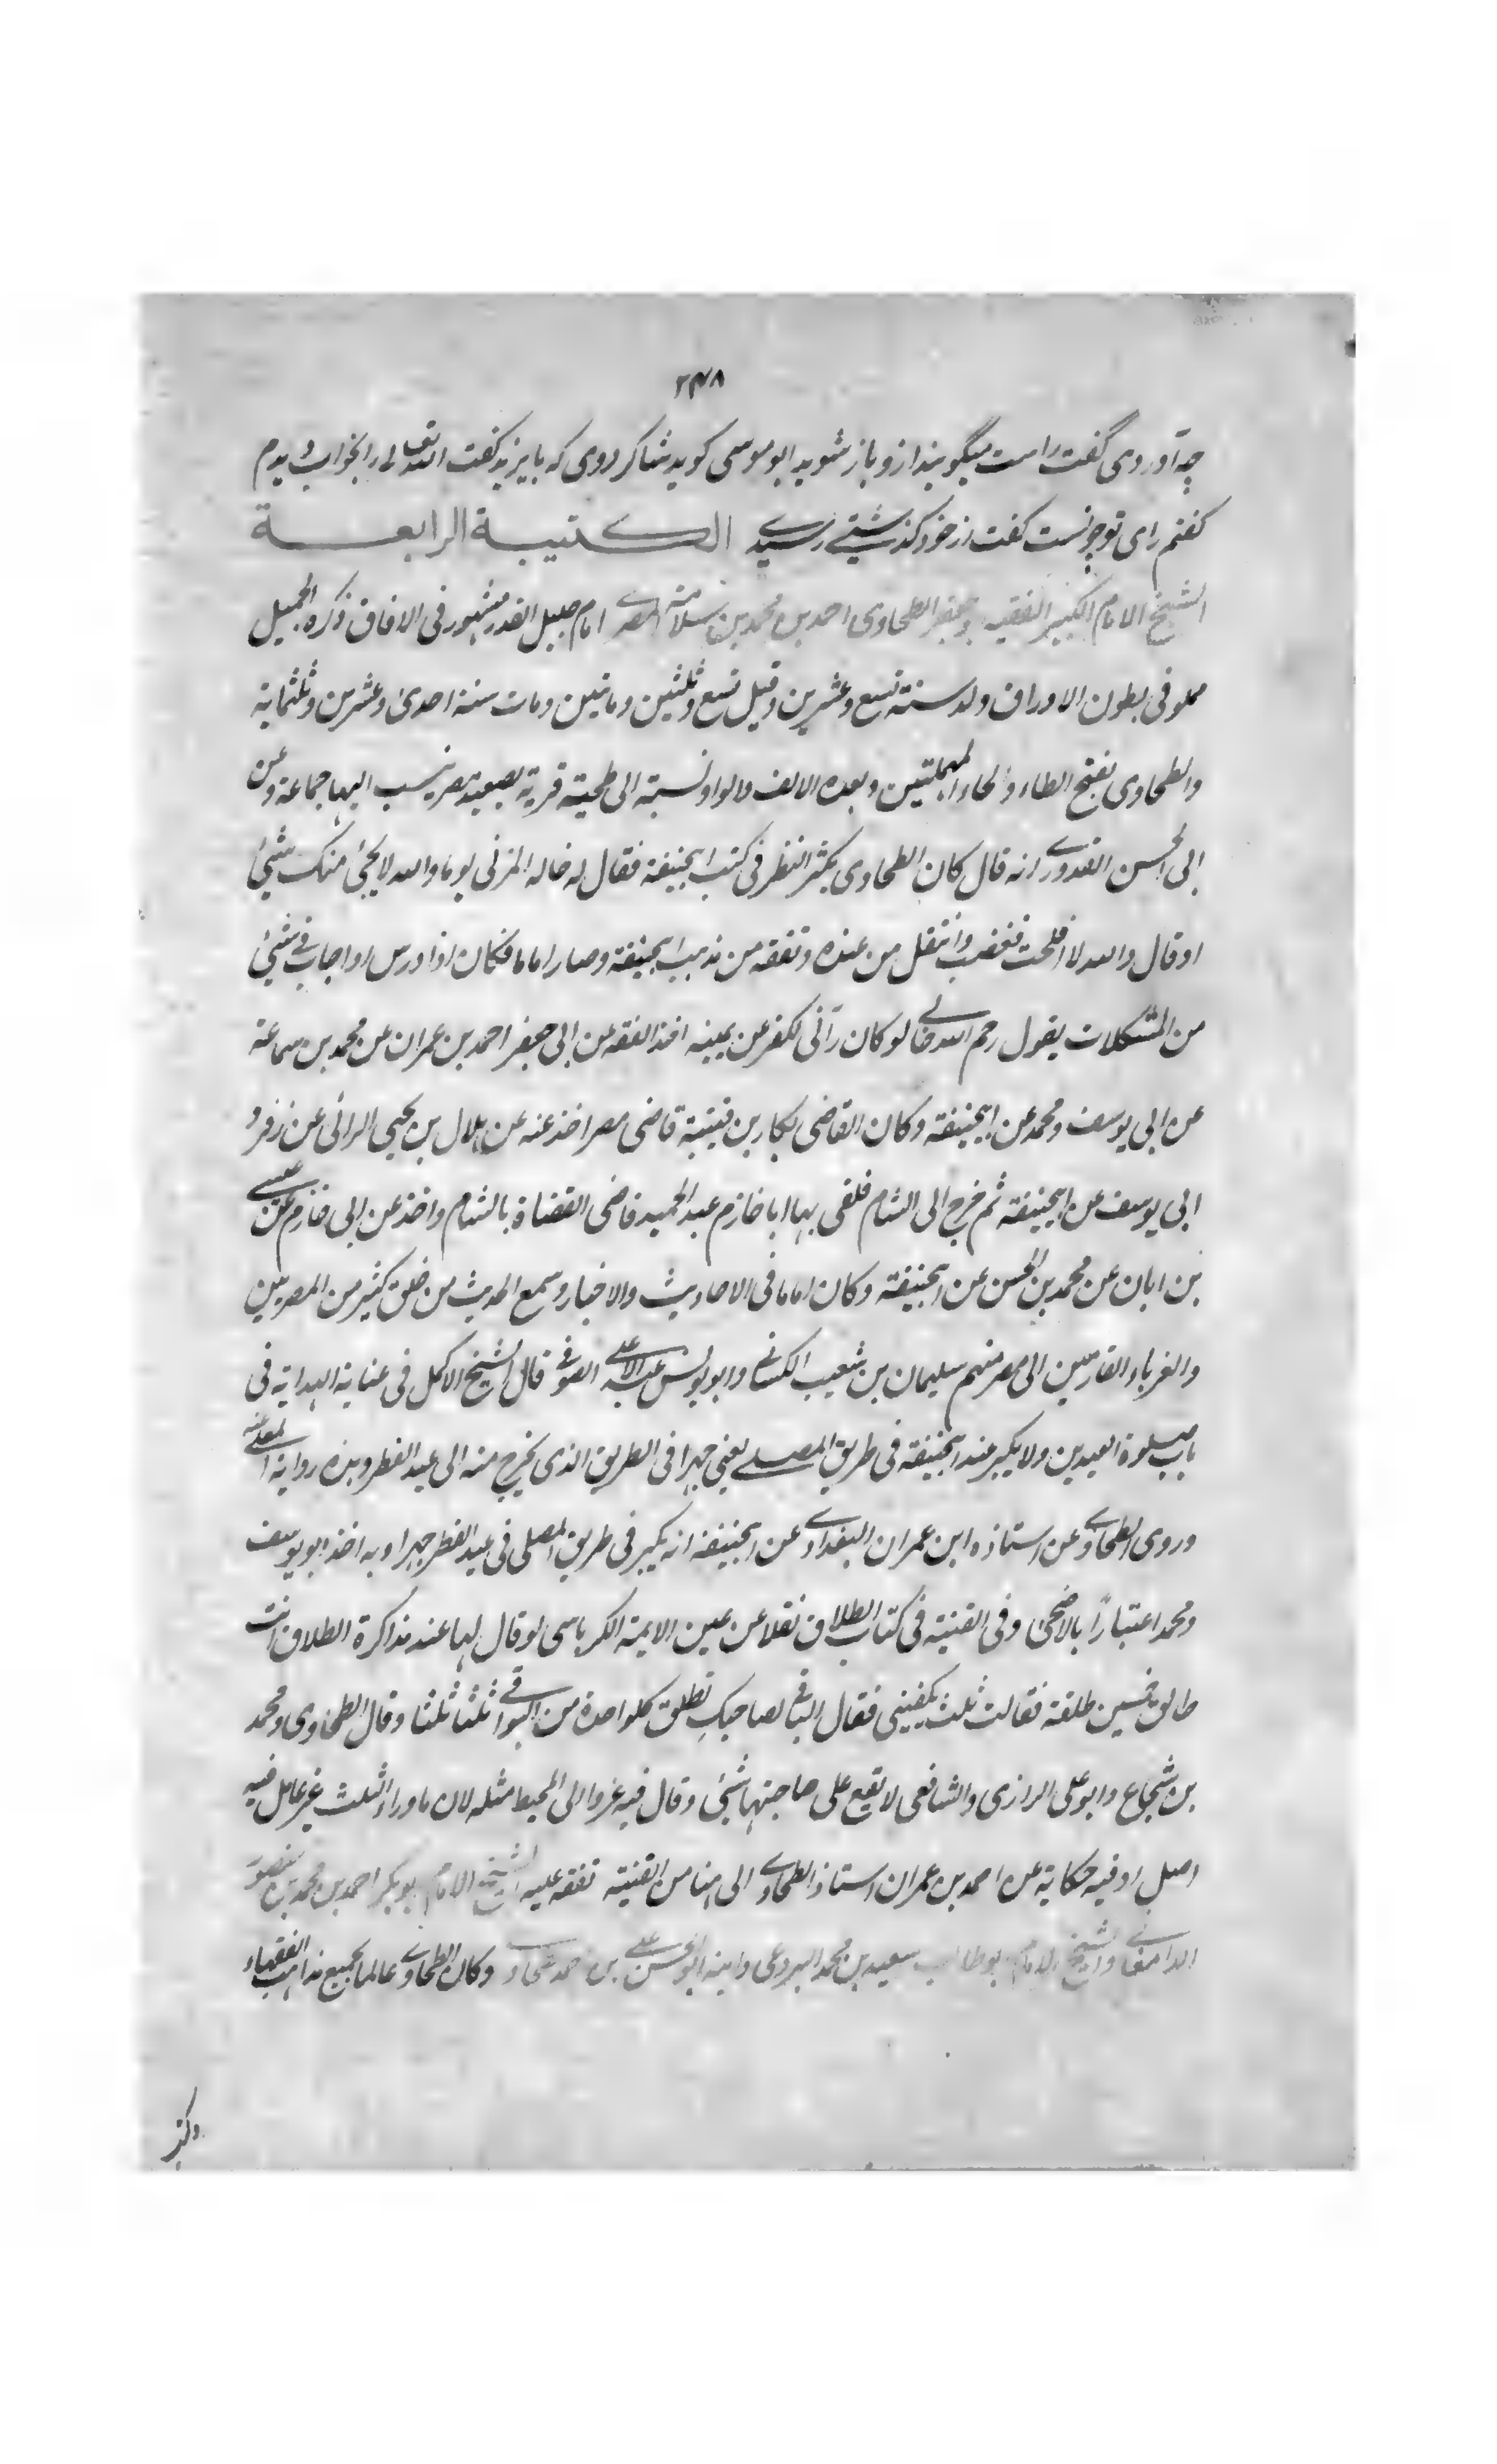 ۲۴۸
چه آوردی گفت راست میگویند ازو باز شوید ابو موسی کوید شاکردوی که بایزید کفت الله تعالی را بخواب دیدم
کفتم رای تو چونست کفت از خود کذشتی رسیدی الكتيبة الرابعة
الشيخ الامام الكبير الفقيه ابو جعفر الطحاوى احمد بن محمد بن سلامة المصرى امام جليل القدر مشهور فى الافاق ذكره الجميل
مملو فى بطون الاوراق ولد سنة تسع وعشرين وقيل تسع وثلثين وماتين ومات سنة احدى وعشرين وثلثماية
والطحاوى بفتح الطاء والحاء المهملتين وبعده الالف والواو نسبة الى طحية قرية بصعيد مصر ينسب اليها جماعة وعن
ابى الحسن القدورى انه قال كان الطحاوى يكثر النظر فى كتب ابيحنيفة فقال له خاله المزنى يوما والله لا يجئ منك شئ
او قال والله لا افلحت فغضب وانتقل من عنده وتفقه من مذهب ابيحنيفة وصار اماما فكان اذا درس او اجاب فى شئ
من المشكلات يقول رحم الله خالى لو كان رآنى لكفر عن يمينه اخذ الفقه عن ابى جعفر احمد بن عمران عن محمد بن سماعة
عن ابى يوسف ومحمد عن ابيحنيفة وكان القاضى بكار بن قتيبة قاضى مصر اخذ عنه عن هلال بن يحيى الرائى عن زفر و
ابى يوسف عن ابيحنيفة ثم خرج الى الشام فلقى بها ابا خازم عبد الحميد قاضى القضاة بالشام واخذ عن ابى خازم عن عيسى
بن ابان عن محمد بن الحسن عن ابيحنيفة وكان اماما فى الاحاديث والاخبار وسمع الحديث من خلق كثير من المصريين
والغرباء القادمين الى مصر منهم سليمان بن شعيب الكيسانى وابو يونس عبد الاعلى الصوفى قال الشيخ الاكمل فى عناية الهداية فى
باب صلوة العيدين ولا يكبر عند ابيحنيفة فى طريق المصلى يعنى جهرا فى الطريق الذى يخرج منه الى عيد الفطر وهذه رواية المعلى عنه
وروى الطحاوى عن استاذه ابن عمران البغدادى عن ابيحنيفة انه يكبر فى طريق المصلى فى عيد الفطر جهرا وبه اخذ ابو يوسف
ومحمد اعتبارًا بالاضحى وفى القنية فى كتاب الطلاق نقلا عن عين الايمة الكرباسى لو قال لها عند مذاكرة الطلاق انت
طالق خمسين طلقة فقالت ثلث يكفينى فقال الباقى لصاحبكِ تطلق كل واحدة من البواقى ثلثا ثلثا وقال الطحاوى ومحمد
بن شجاع وابو على الرازى والشافعى لا يقع على صاحبتها شئ وقال فيه عزوا الى المحيط مثله لان ما وراء الثلث غير عامل فيه
اصل اوفيه حكاية عن احمد بن عمران استاذ الطحاوى الى هنا من القنية تفقه عليه الشيخ الامام ابو بكر احمد بن محمد بن منصور
الدامغانى والشيخ الامام ابو طالب سعيد بن محمد البردعى وابنه ابو الحسن على بن احمد الطحاوى وكان الطحاوى عالما بجميع مذاهب الفقهاء